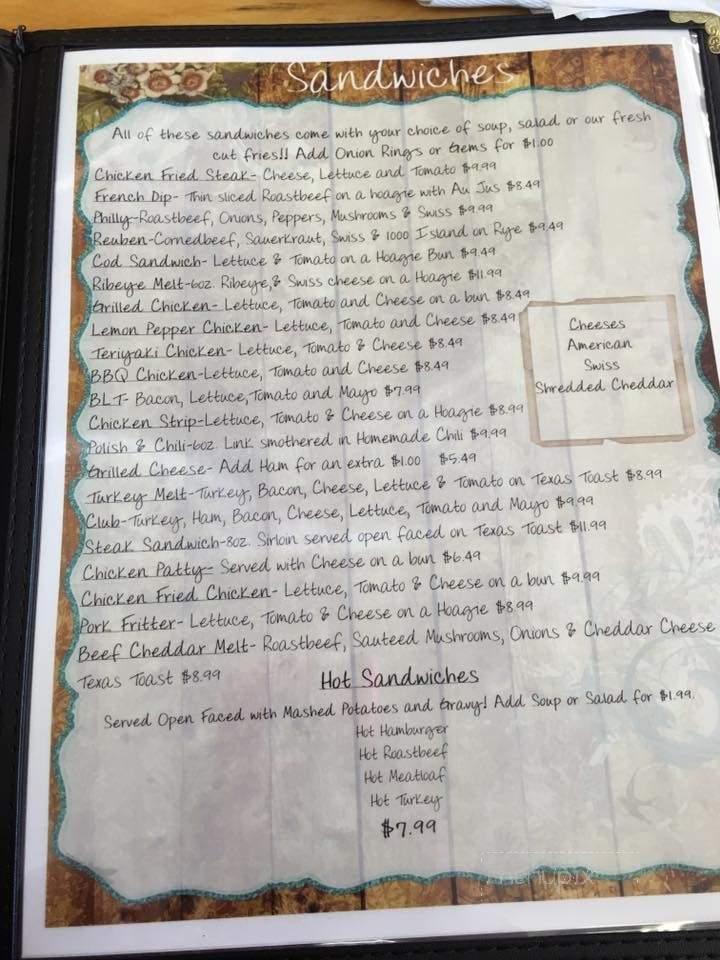 Sandwiches
All of these sandwiches come with your choice of soup, salad or our fresh
cut fries!! Add Onion Rings or Gems for $1.00
Chicken Fried Steak- Cheese, Lettuce and Tomato $9.99
French Dip- Thin sliced Roastbeef on a hoagie with Au Jus $8.49
Philly-Roastbeef, Onions, Peppers, Mushrooms & Swiss $9.99
Reuben-Cornedbeef, Sauerkraut, Swiss & 1000 Island on Rye $9.49
Cod Sandwich- Lettuce & Tomato on a Hoagie Bun $9.49
Ribeye Melt-6oz. Ribeye,& Swiss cheese on a Hoagie $11.99
Grilled Chicken- Lettuce, Tomato and Cheese on a bun $8.49
Lemon Pepper Chicken- Lettuce, Tomato and Cheese $8.49
Teriyaki Chicken- Lettuce, Tomato & Cheese $8.49
BBQ Chicken-Lettuce, Tomato and Cheese $8.49
BLT- Bacon, Lettuce,Tomato and Mayo $7.99
Chicken Strip-Lettuce, Tomato & Cheese on a Hoagie $8.99
Polish & Chili-6oz. Link smothered in Homemade Chili $9.99
Grilled Cheese- Add Ham for an extra $1.00 $5.49
Turkey Melt-Turkey, Bacon, Cheese, Lettuce & Tomato on Texas Toast $8.99
Club-Turkey, Ham, Bacon, Cheese, Lettuce, Tomato and Mayo $9.99
Steak Sandwich-8oz. Sirloin served open faced on Texas Toast $11.99
Chicken Patty- Served with Cheese on a bun $6.49
Chicken Fried Chicken- Lettuce, Tomato & Cheese on a bun $9.99
Pork Fritter- Lettuce, Tomato & Cheese on a Hoagie $8.99
Beef Cheddar Melt- Roastbeef, Sauteed Mushrooms, Onions & Cheddar Cheese
Texas Toast $8.99
Cheeses
American
Swiss
Shredded Cheddar
Hot Sandwiches
Served Open Faced with Mashed Potatoes and Gravy! Add Soup or Salad for $1.99.
Hot Hamburger
Hot Roastbeef
Hot Meatloaf
Hot Turkey
$7.99
menupix